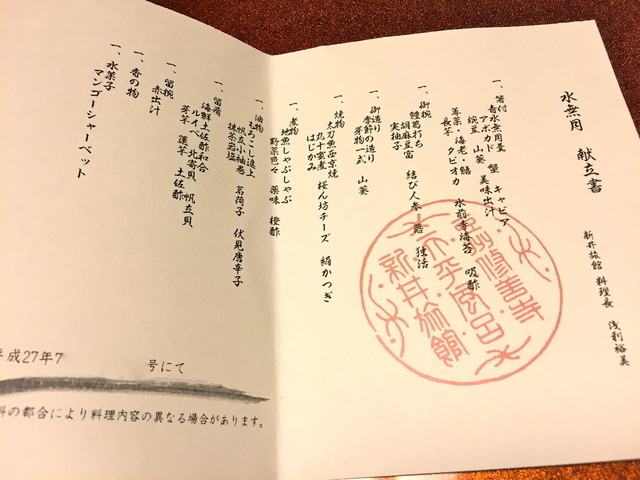 水無月 献立書
新井旅館 料理長 浅利裕美
一、箸付
水無月豆 蟹 キャビア
アボカド 山葵 美味出汁
蓴菜・海老・鰭 水前寺海苔 吸酢
長芋 タピオカ
一、御椀
鱧葛打ち
胡麻豆富 結び人参 蕗 独活
実柚子
一、御造り
季節の造り
芽物一式 山葵
一、焼物
太刀魚西京焼 桜ん坊チーズ 絹かつぎ
丸十蜜煮
はじかみ
一、煮物
地魚しゃぶしゃぶ
野菜色々 薬味 橙酢
一、油物
もろこし追上
帆立小袖巻 茗荷子 伏見唐辛子
抹茶岩塩
一、留肴
海鮮土佐酢和合
ルイベ 北寄貝 帆立貝
芽芋 蓮芋 土佐酢
一、留椀
赤出汁
一、香の物
一、水菓子
マンゴーシャーベット
平成27年7
号にて
料の都合により料理内容の異なる場合があります。
修善寺
新井旅館